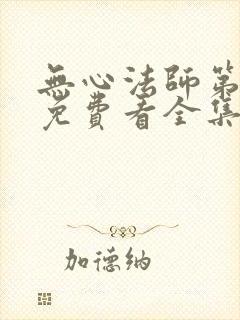 無心法師第
免費看全集
加德纳